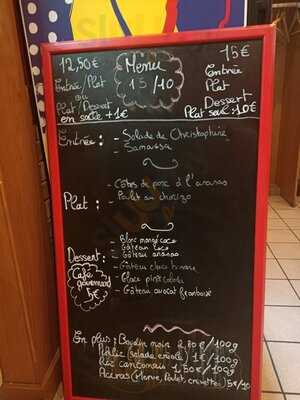 12,50€
Entrée/Plat
ou
Plat/Dessert
en salle +1€
Menu
15/10
15€
Entrée
Plat
Dessert
Plat seul:10€
Entrée :
- Salade de Christophine
- Samoussa
Plat :
- Côtes de porc à l'ananas
- Poulet au chorizo
Dessert:
- Blanc mangé coco
- Gâteau coco
- Gâteau ananas
- Gâteau choco banane
- Glace pina colada
- Gâteau avocat framboise
Café
gourmand
5€
En plus : Boudin noir 2,80€/100g
(salade créole) 1€/100g
Riz cantonais 1,50€/100g
Accras (Morue, Poulet, crevettes) 5€/10